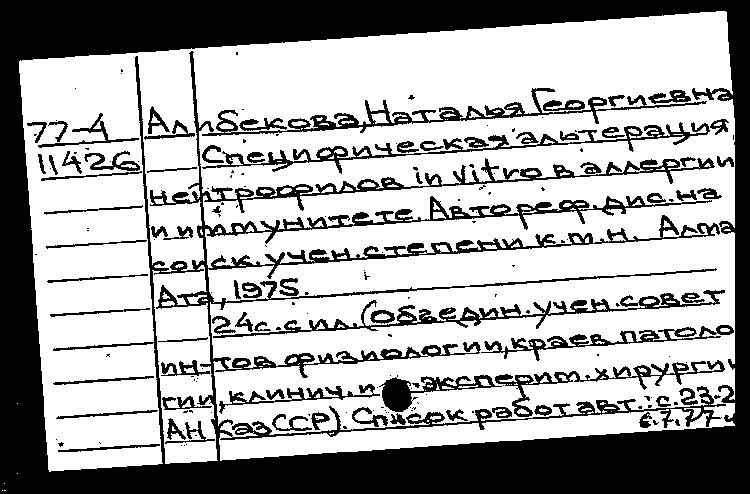 77-4 Алибекова, Наталья Георгиевна
11426 Специфическая альтерация
нейтрофилов in vitro в аллергии
и иммунитете. Автореф. дис. на
соиск. учен. степени к.м.н. Алма
Ата, 1975.
24с. с ил. (Объедин. учен. совет
ин-тов физиологии, краев. патоло
гии, клинич. и эксперим. хирургии
АН КазССР). Список работ авт.: с. 23-2
6.7.77